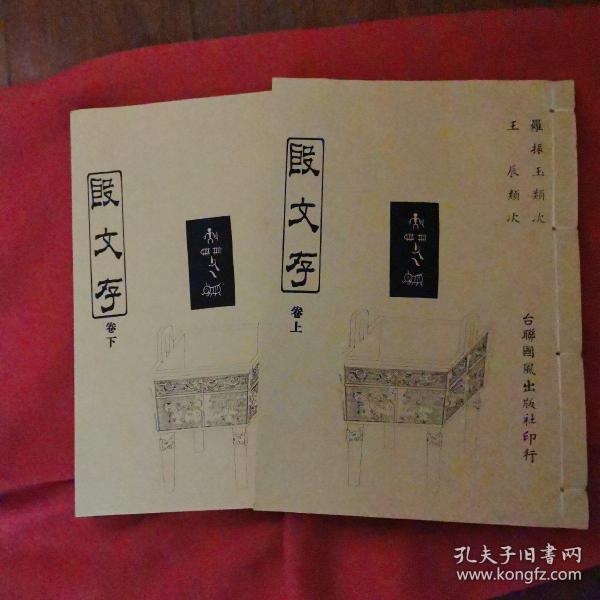 羅振玉類次
王辰類次
台聯國風出版社印行
殷文存
卷上
殷文存
卷下
孔夫子旧书网
www.kongfz.com